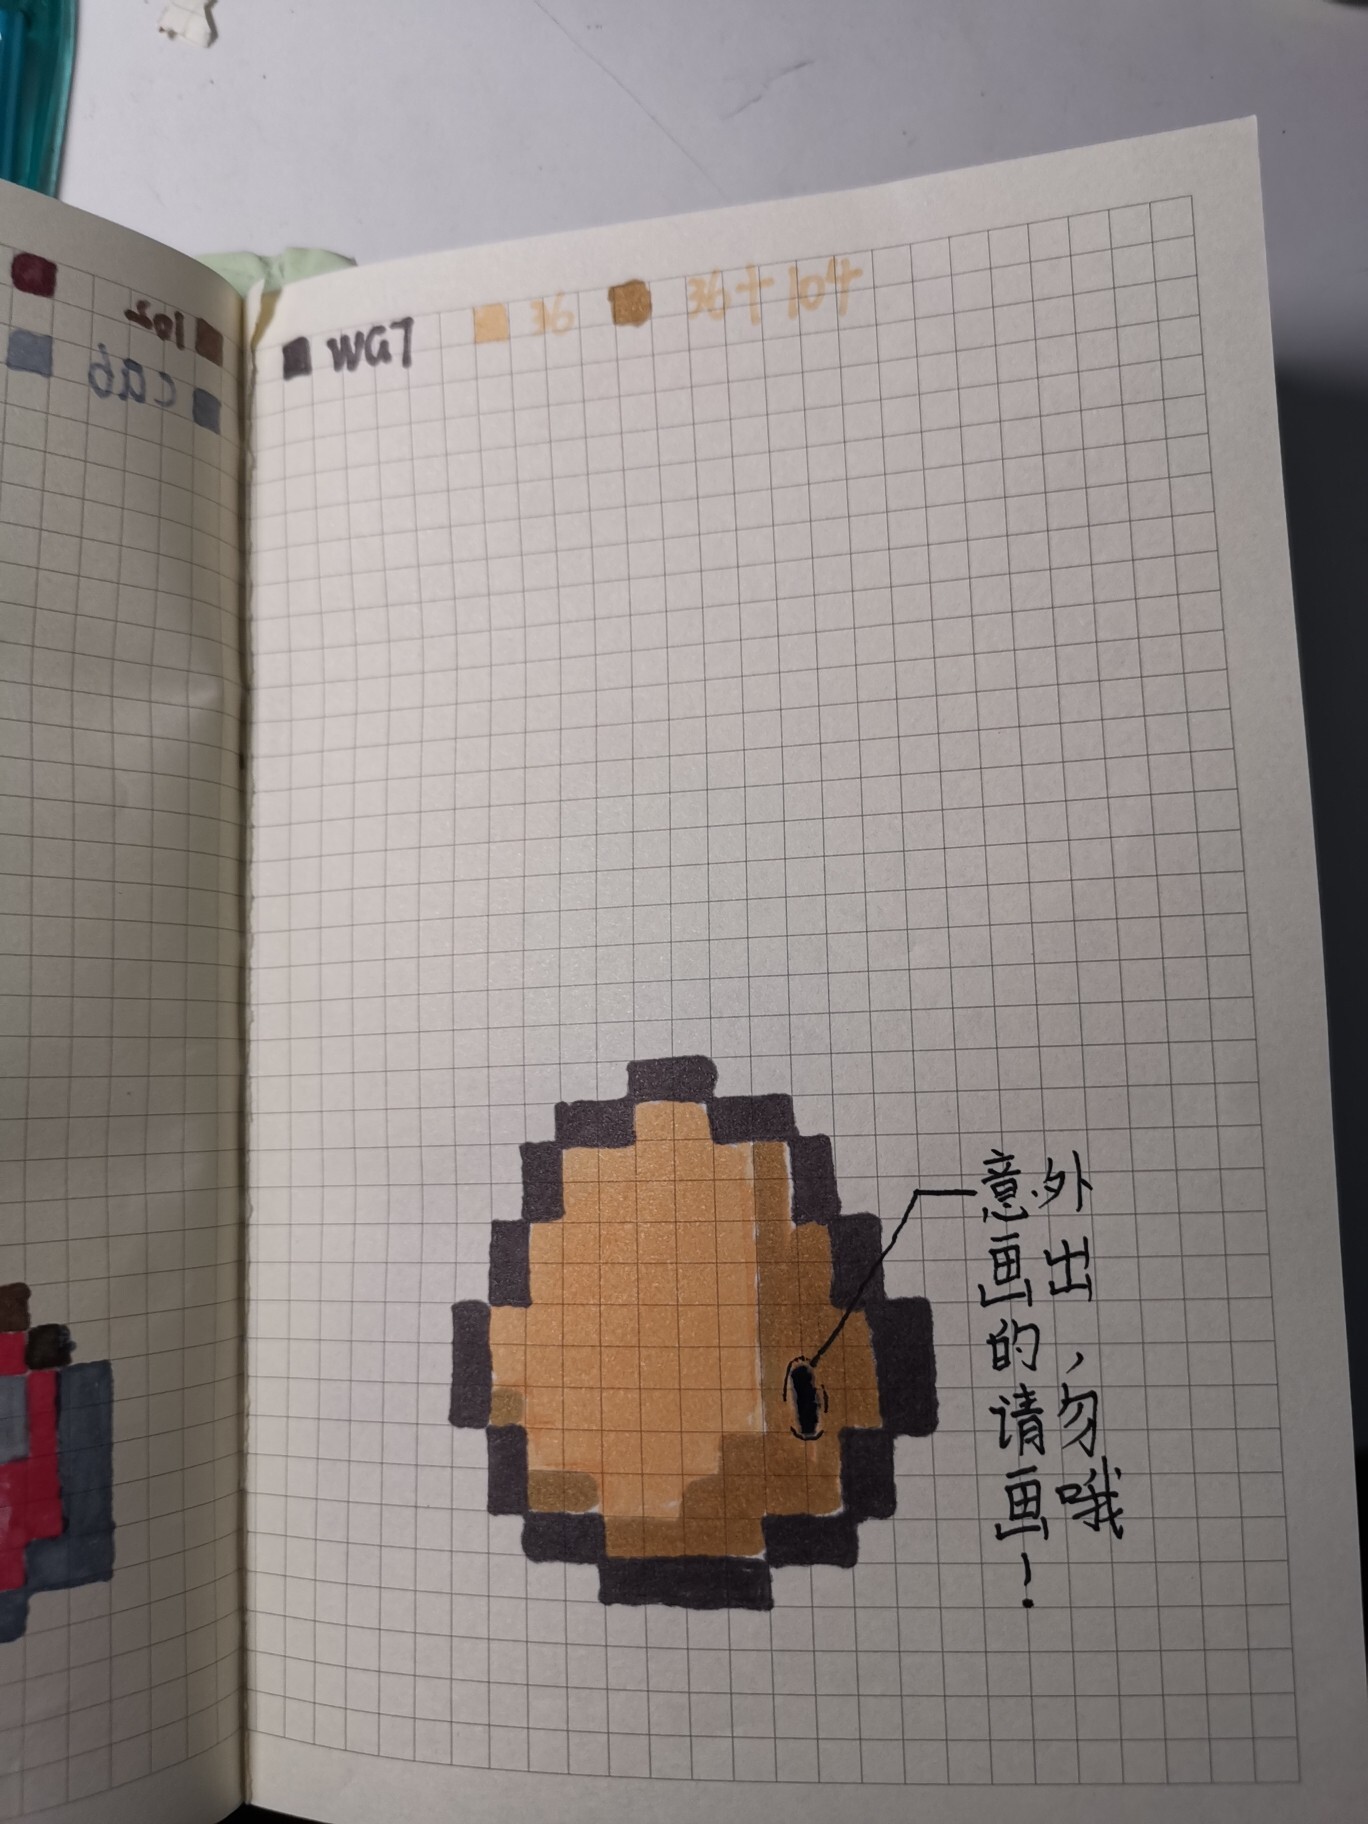 WG7 36 36+104
意外
画出
的，
请勿
画哦
！